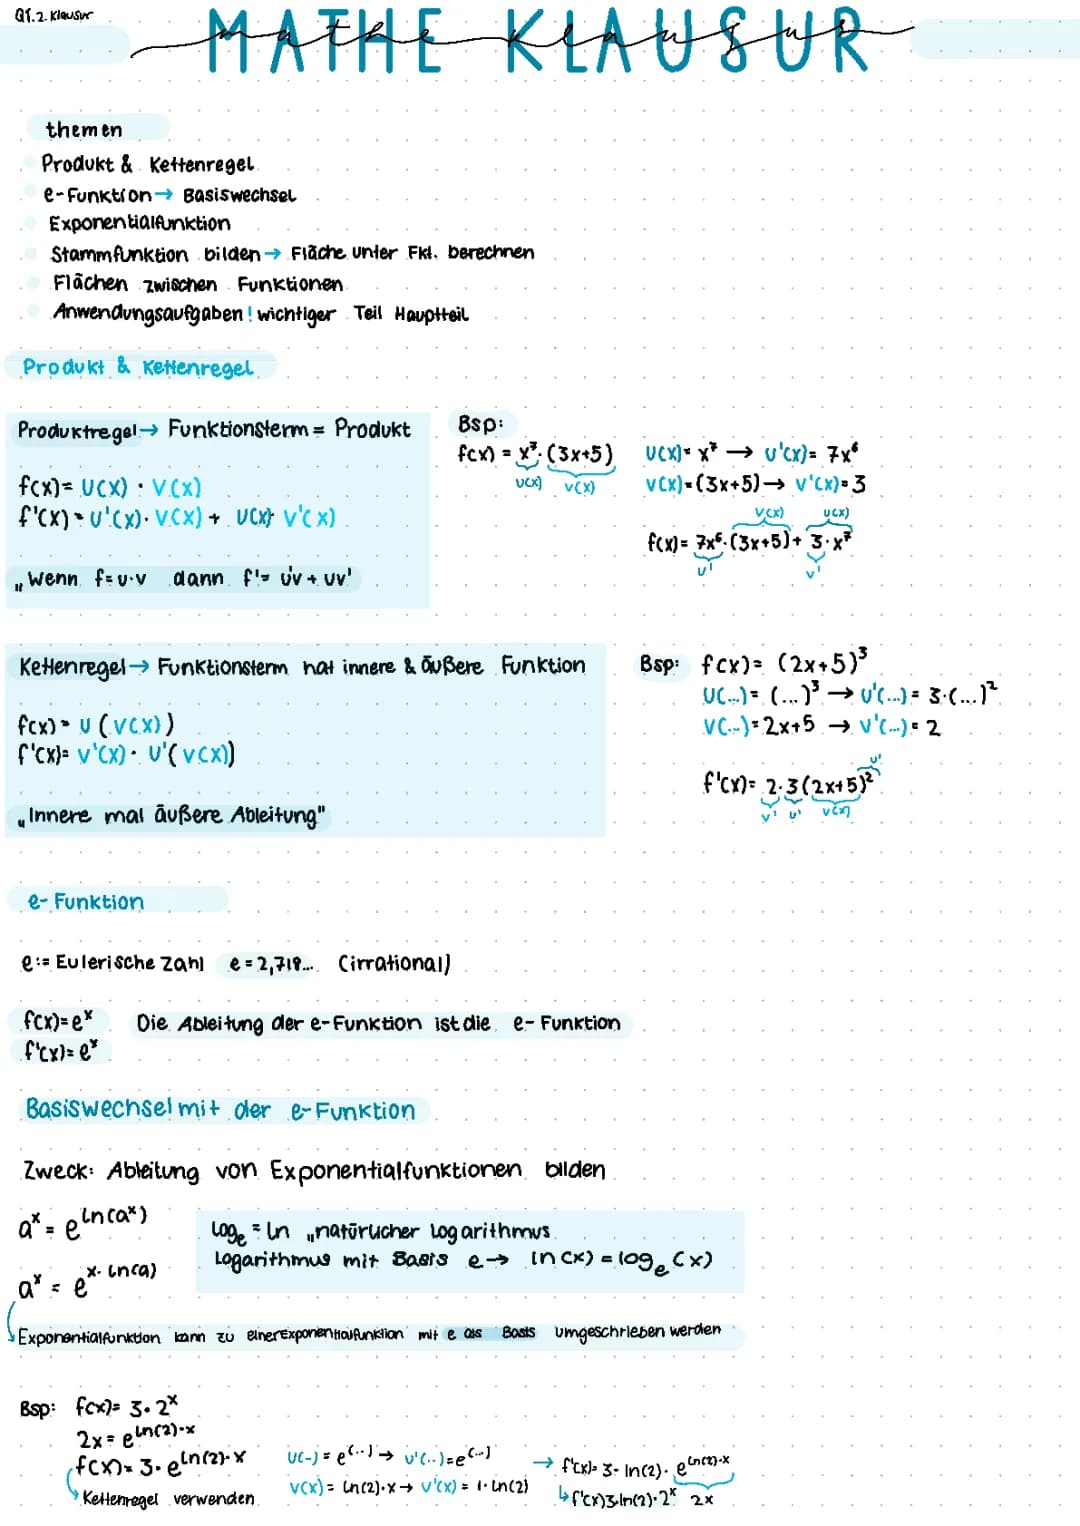 Q1.2. Klausur
MATHE KLAUSUR
mathe klausur
themen
Produkt & Kettenregel
e-Funktion → Basiswechsel
Exponentialfunktion
Stammfunktion bilden → Fläche unter Fkt. berechnen
Flächen zwischen Funktionen
Anwendungsaufgaben! wichtiger Teil Hauptteil
Produkt & Kettenregel
Produktregel → Funktionsterm = Produkt
f(x) = u(x) · v(x)
f'(x) = u'(x) · v(x) + u(x) · v'(x)
„Wenn f=u·v dann f'= u'v + uv'
Bsp:
f(x) = x⁷ · (3x+5)
u(x) v(x)
u(x) = x⁷ → u'(x) = 7x⁶
v(x) = (3x+5) → v'(x) = 3
v(x) u(x)
f(x) = 7x⁶ · (3x+5) + 3 · x⁷
u' v'
Kettenregel → Funktionsterm hat innere & äußere Funktion
f(x) = u (v(x))
f'(x) = v'(x) · u'(v(x))
„Innere mal äußere Ableitung"
Bsp: f(x) = (2x+5)³
u(...) = (...)³ → u'(...) = 3·(...)²
v(...) = 2x+5 → v'(...) = 2
u'
f'(x) = 2·3(2x+5)²
v' u' v(x)
e-Funktion
e := Eulerische Zahl e = 2,718... (irrational)
f(x) = eˣ Die Ableitung der e-Funktion ist die e-Funktion
f'(x) = eˣ
Basiswechsel mit der e-Funktion
Zweck: Ableitung von Exponentialfunktionen bilden
aˣ = e^ln(aˣ)
aˣ = e^x·ln(a)
logₑ = ln „natürlicher Logarithmus
Logarithmus mit Basis e → ln(x) = logₑ(x)
Exponentialfunktion kann zu einer Exponentialfunktion mit e als Basis umgeschrieben werden
Bsp: f(x) = 3·2ˣ
2x = e^ln(2)·x
f(x) = 3·e^ln(2)·x
Kettenregel verwenden
u(..) = e^(...) → u'(...) = e^(...)
v(x) = ln(2)·x → v'(x) = 1·ln(2)
→ f'(x) = 3·ln(2)·e^ln(2)·x
↳ f'(x)3·ln(2)·2ˣ 2x